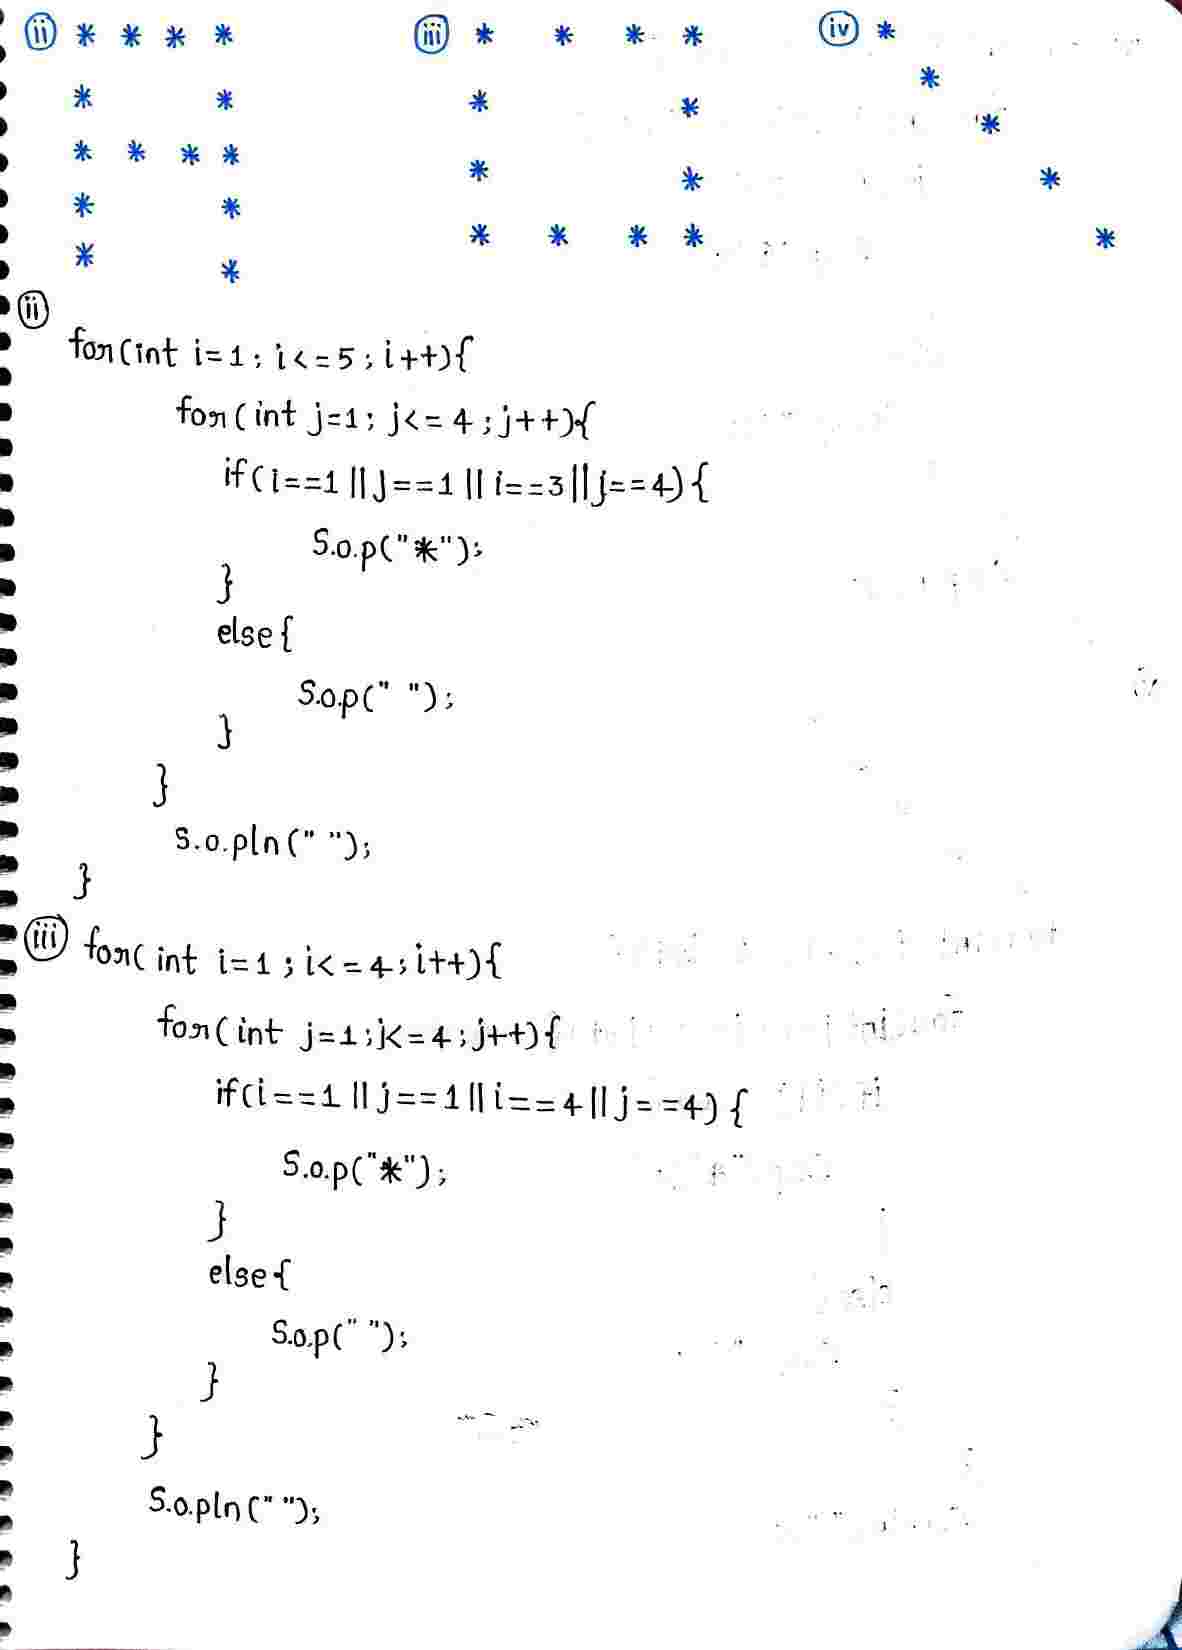 ii * * * * iii * * * * iv *
*
* * * *
*
* * * * * *
* * * * *
* * * * * * *
ii
for(int i=1; i<=5; i++){
for(int j=1; j<=4; j++){
if(i==1||J==1||i==3||j==4){
S.o.p("*");
}
else{
S.o.p(" ");
}
}
S.o.pln(" ");
}
iii for(int i=1; i<=4; i++){
for(int j=1; j<=4; j++){
if(i==1||j==1||i==4||j==4){
S.o.p("*");
}
else{
S.o.p(" ");
}
}
S.o.pln(" ");
}